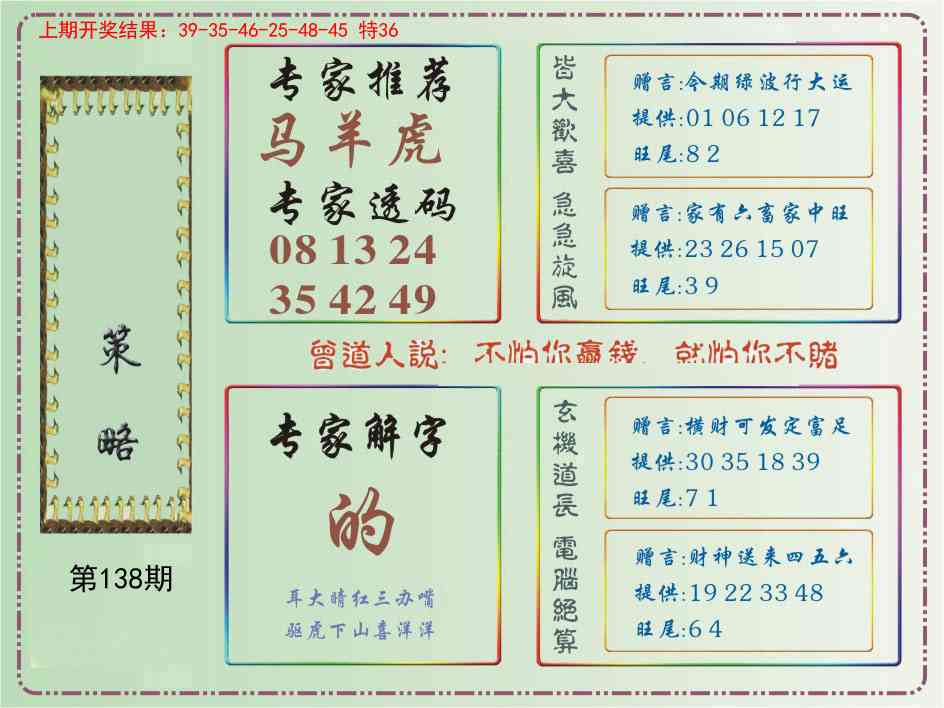 上期开奖结果：39-35-46-25-48-45 特36
策略
第138期
专家推荐
马羊虎
专家透码
08 13 24
35 42 49
皆大歡喜
赠言:今期绿波行大运
提供:01 06 12 17
旺尾:8 2
急急旋風
赠言:家有六畜家中旺
提供:23 26 15 07
旺尾:3 9
曾道人説: 不怕你贏錢. 就怕你不賭
专家解字
的
耳大晴红三办嘴
驱虎下山喜洋洋
玄機道長
赠言:横财可发定富足
提供:30 35 18 39
旺尾:7 1
電腦絕算
赠言:财神送来四五六
提供:19 22 33 48
旺尾:6 4